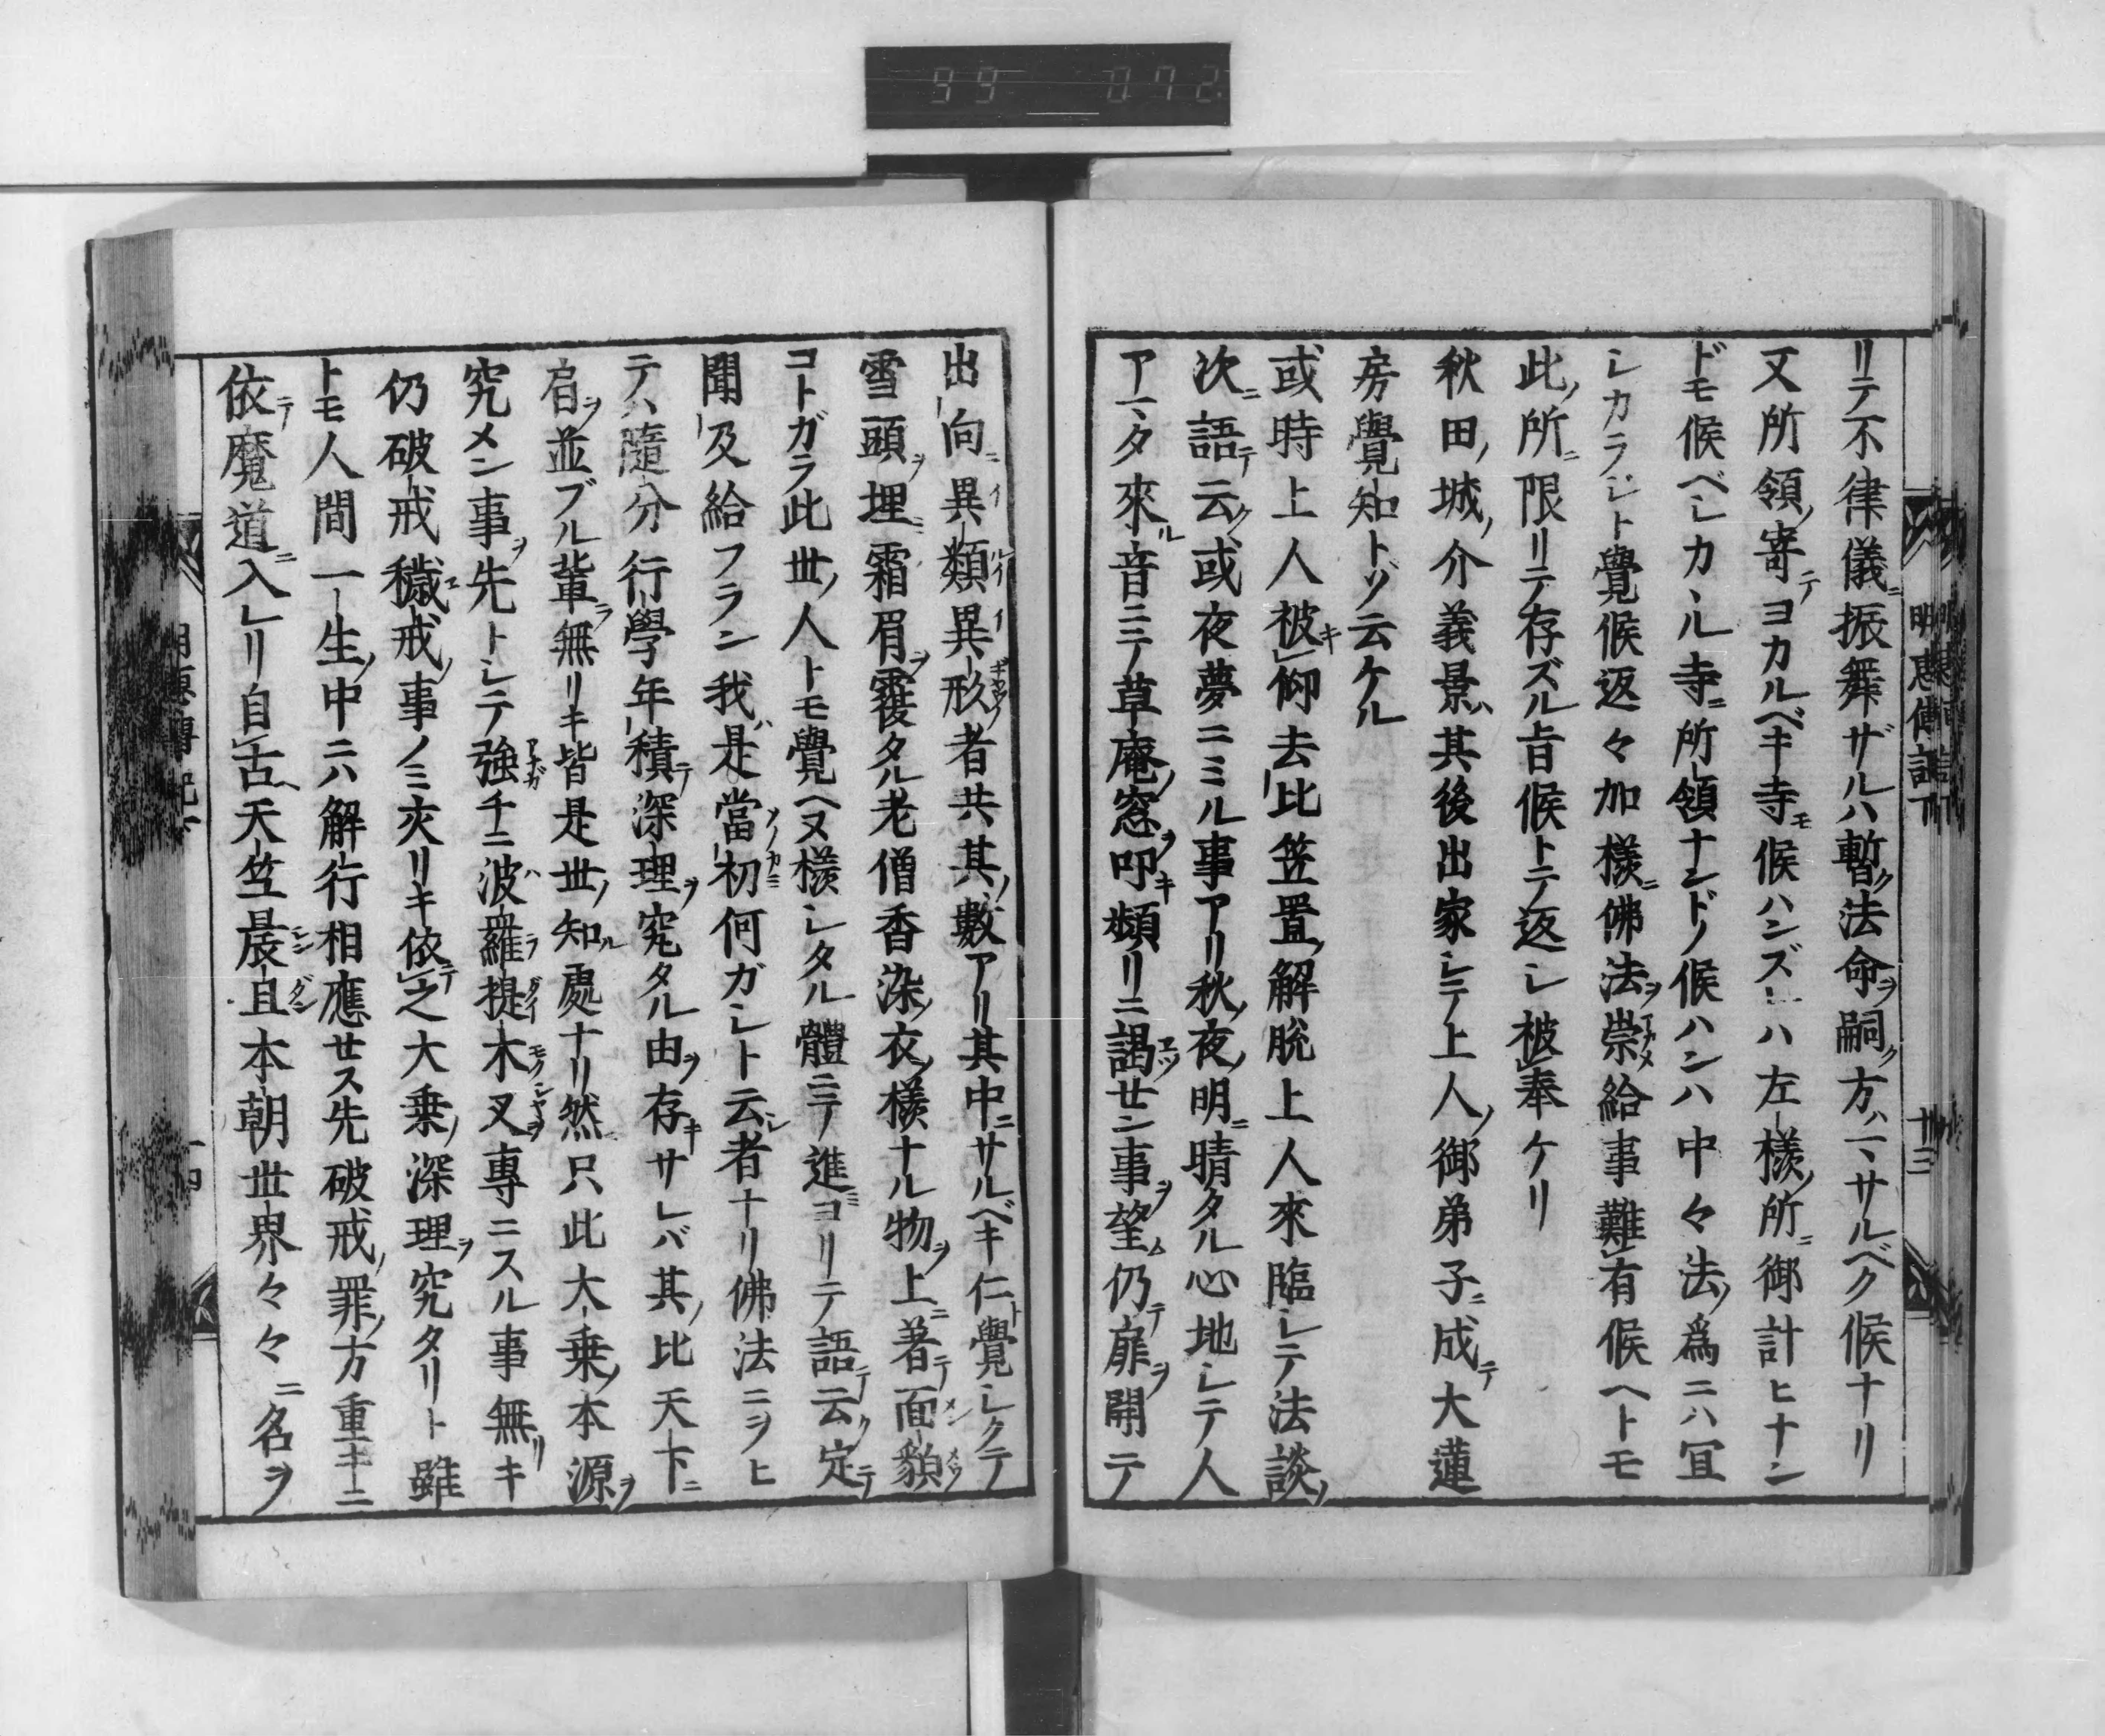 リテ不律儀ニ振舞ザルハ暫ク法命ヲ嗣ク方ハマサルベク候ナリ
又所領ノ寄テヨカルベキ寺モ候ハンズレハ左樣ノ所ニ御計ヒナン
ドモ候ベシカヽル寺ニ所領ナンドノ候ハンハ中々法ノ爲ニハ冝
シカラジト覺候返々加樣ニ佛法ヲ崇メ給事難有候ヘトモ
此ノ所ニ限リテ存ズル㫖候トテ返シ被奉ケリ
秋田ノ城ノ介義景ハ其後出家シテ上人ノ御弟子ニ成テ大蓮
房覺知トゾ云ケル
或時上人被キ仰去比笠置ノ解脱上人來臨シテ法談ノ
次ニ語テ云ク或夜夢ニミル事アリ秋ノ夜ノ明ニ晴タル心地シテ人
アマタ來ル音ニテ草庵ノ窓ヲ叩キ頻リニ謁セン事ヲ望ム仍テ扉ヲ開テ
出向ニ異類異形ノ者共其ノ數アリ其中ニサルベキ仁ト覺シクテ
雪頭ヲ埋ニ霜眉ヲ覆タル老僧香染ノ衣ノ樣ナル物ヲ上ニ著テ面貌
コトガラ此世ノ人トモ覺ヘヌ樣シタル體ニテ進ミヨリテ語テ云ク定テ
聞及給フラン我ハ是當初何ガシト云シ者ナリ佛法ニヲヒ
テハ隨分行學年積テ深理ヲ究タル由ヲ存キサレバ其ノ比天下ニ
肩ヲ並ブル輩ラ無リキ皆是世ノ知ル處ナリ然ニ只此大乗ノ本源ヲ
究メン事ヲ先トシテ強チニ波羅提木叉ヲ專ニスル事無リキ
仍破戒穢戒ノ事ノミ夾リキ依テ之大乗ノ深理ヲ究タリト雖
トモ人間一生ノ中ニハ解行相應セス先破戒ノ罪ノ方重キニ
依テ魔道ニ入レリ自古ヘ天竺晨旦本朝世界々々ニ名ヲ
明恵傳記下
廿三